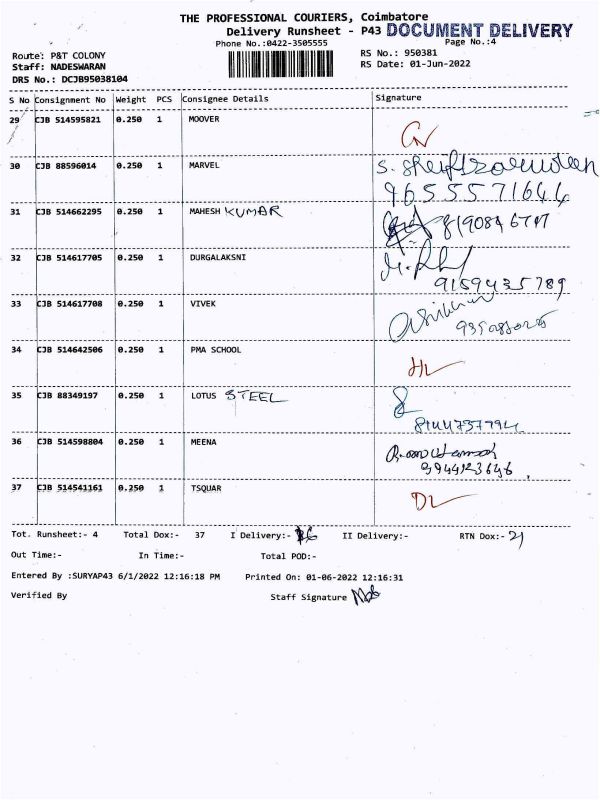 THE PROFESSIONAL COURIERS, Coimbatore
Delivery Runsheet - P43 DOCUMENT DELIVERY
Phone No.:0422-3505555 Page No.:4
Route: P&T COLONY RS No.: 950381
Staff: NADESWARAN RS Date: 01-Jun-2022
DRS No.: DCJB95038104
S No Consignment No Weight PCS Consignee Details Signature
29 CJB 514595821 0.250 1 MOOVER
30 CJB 88596014 0.250 1 MARVEL
9655571644
31 CJB 514662295 0.250 1 MAHESH KUMAR
32 CJB 514617705 0.250 1 DURGALAKSNI
9159435789
33 CJB 514617708 0.250 1 VIVEK
34 CJB 514642506 0.250 1 PMA SCHOOL
35 CJB 88349197 0.250 1 LOTUS STEEL
36 CJB 514598804 0.250 1 MEENA
37 CJB 514541161 0.250 1 TSQUAR
DL
Tot. Runsheet:- 4 Total Dox:- 37 I Delivery:- II Delivery:- RTN Dox:- 21
Out Time:- In Time:- Total POD:-
Entered By :SURYAP43 6/1/2022 12:16:18 PM Printed On: 01-06-2022 12:16:31
Verified By Staff Signature